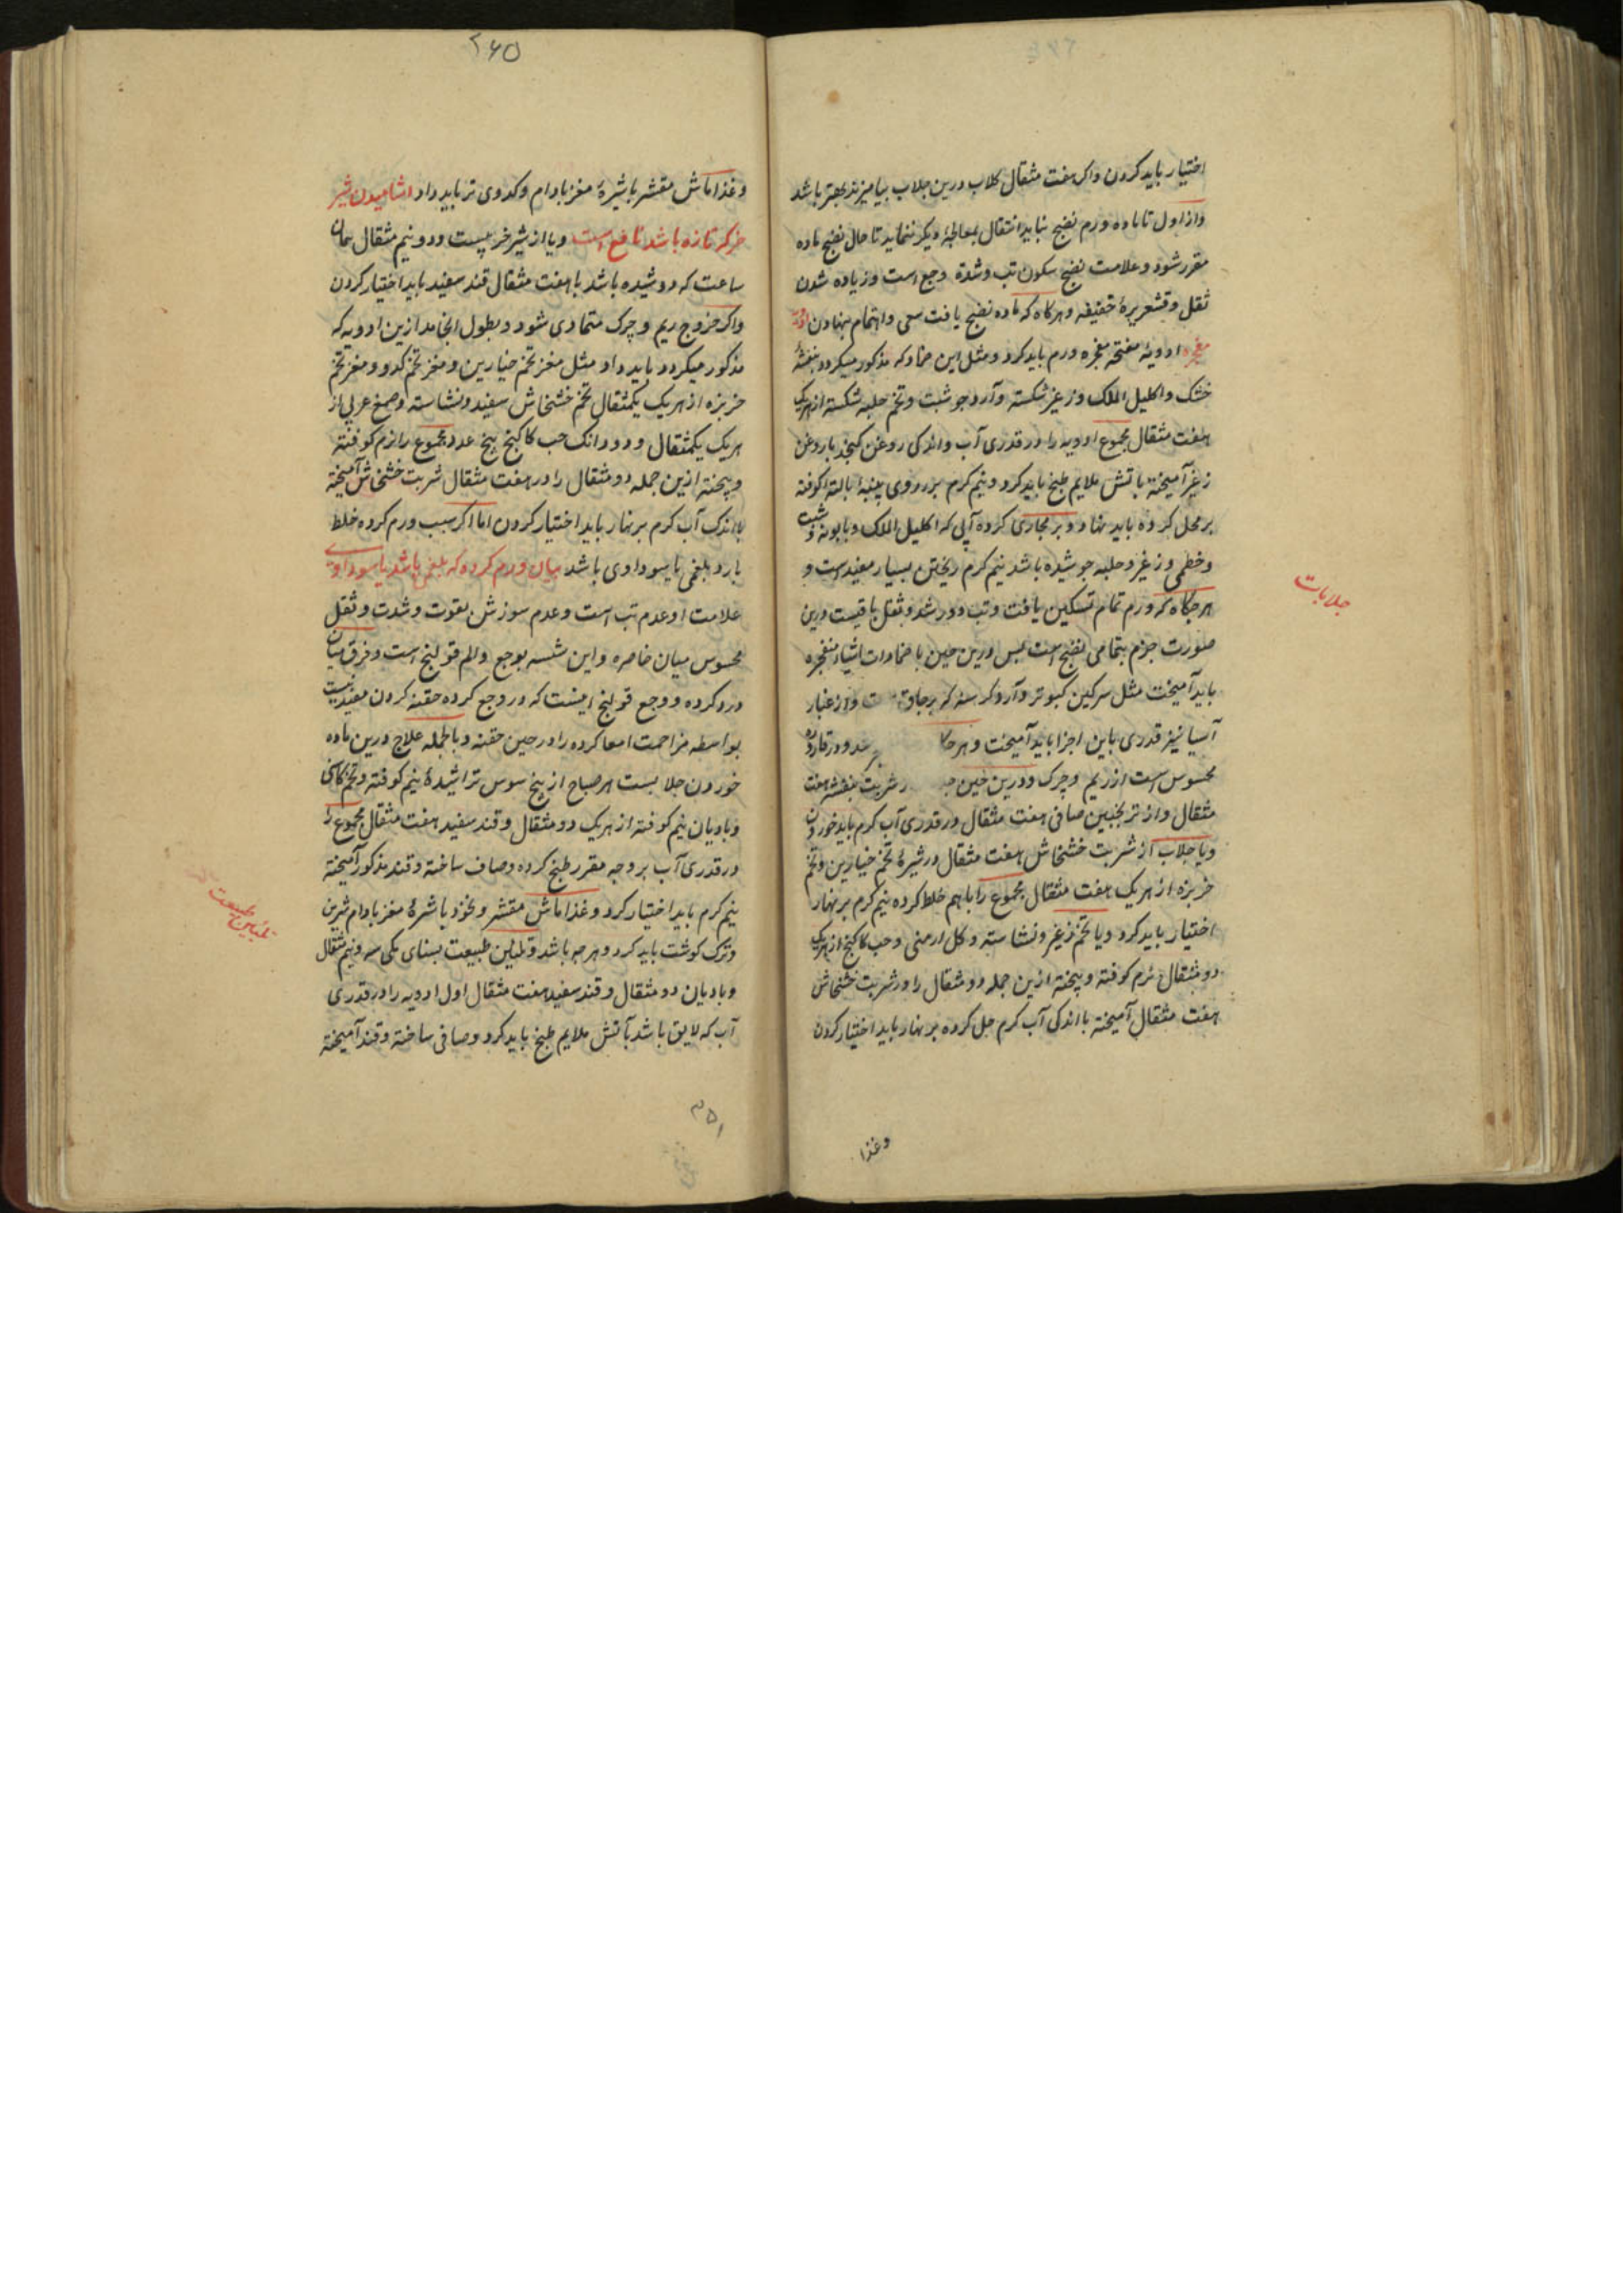 اختیار باید کردن واکر هفت مثقال کلاب درین جلاب بیامیزند بهتر باشد
واز اول تا ماده ورم نضج نیابد انتقال بمعالجهٔ دیکر ننماید تا حال نضج ماده
مقرر شود وعلامت نضج سکون تب وشدة وجع است وزیاده شدن
ثقل وقشعریرهٔ خفیفه وهرکاه که ماده نضج یافت سعی واهتمام بنهادن ادویه
مفجره ادویهٔ مفتحه مفجره ورم باید کرد ومثل این ضماد که مذکور میکردد بنفشهٔ
خشک واکلیل الملک وزغیر شکسته وآرد جو شبت وتخم حلبه شکسته از هریک
هفت مثقال مجموع ادویه را در قدری آب واندکی روغن کنجد یا روغن
زغیر آمیخته باتش ملایم طبخ باید کرد ونیم کرم بر روی پنبهٔ یا لتهٔ کوفته
بر محل کرده باید نهاد وبر مجاری کرده آبی که اکلیل الملک وبابونه وشبت
وخطمی وزغیر وحلبه جوشیده باشد نیم کرم ریختن بسیار مفید است و
هرجکاه که ورم تمام تسکین یافت وتب دور شد وثقل باقیست درین
صورت جزم بتمامی نضج است پس درین حین با ضمادات اشیاء منفجره
باید آمیخت مثل سرکین کبوتر وآرد کرسنه که واز غبار
آسیا نیز قدری باین اجزا باید آمیخت وهرجا در قاروره
محسوس است از ریم وچرک ودرین حین شربت بنفشه هفت
مثقال واز ترنجبین صافی هفت مثقال در قدری آب کرم باید خوردن
ویا جلاب از شربت خشخاش هفت مثقال در شیرهٔ تخم خیارین وتخم
خربزه از هریک هفت مثقال مجموع را باهم خلط کرده نیم کرم بر نهار
اختیار باید کرد ویا تخم زغیر ونشاسته وکل ارمنی وحب کاکنج از هریک
دو مثقال نرم کوفته وپخته ازین جمله دو مثقال را در شربت خشخاش
هفت مثقال آمیخته با اندکی آب کرم حل کرده بر نهار باید اختیار کردن
وغذا
جلابات
۲۶۵
وغذا ماش مقشر با شیرهٔ مغز بادام وکدوی تر باید داد اشامیدن شیر
خر که تازه باشد نافع است ویا از شیر خر بیست ودو نیم مثقال همان
ساعت که دوشیده باشد با هفت مثقال قند سفید باید اختیار کردن
واکر خروج ریم وچرک متمادی شود وبطول انجامد ازین ادویه که
مذکور میکردد باید داد مثل مغز تخم خیارین ومغز تخم کدو ومغز تخم
خربزه از هریک یکمثقال تخم خشخاش سفید ونشاسته وصمغ عربی از
هریک یکمثقال ودو دانک حب کاکنج پنج عدد مجموع را نرم کوفته
وپخته ازین جمله دو مثقال را در هفت مثقال شربت خشخاش آمیخته
با اندک آب کرم بر نهار باید اختیار کردن اما اکر سبب ورم کرده خلط
بارد بلغمی یا سوداوی باشد بیان ورم کرده که بلغمی باشد یا سوداوی
علامت او عدم تب است وعدم سوزش بقوت وشدت وثقل
محسوس میان خاصره واین شبیه بوجع والم قولنج است وفرق میان
درد کرده ووجع قولنج اینست که در وجع کرده حقنه کردن مفید نیست
بواسطه مزاحمت امعا کرده را در حین حقنه وبالجمله علاج درین ماده
خوردن جلابست هر صباح از بیخ سوس تراشیدهٔ نیم کوفته وتخم کاسنی
وبادیان نیم کوفته از هریک دو مثقال وقند سفید هفت مثقال مجموع را
در قدری آب بر وجه مقرر طبخ کرده وصاف ساخته وقند مذکور آمیخته
نیم کرم باید اختیار کرد وغذا ماش مقشر ونخود با شرهٔ مغز بادام شرین
وترک کوشت باید کرد وهرچه باشد وتلیین طبیعت بسنای مکی سه ونیم مثقال
وبادیان دو مثقال وقند سفید هفت مثقال اول ادویه را در قدری
آب که لایق باشد بآتش ملایم طبخ باید کرد وصافی ساخته وقند آمیخته
تلیین طبیعت
۳۵۱